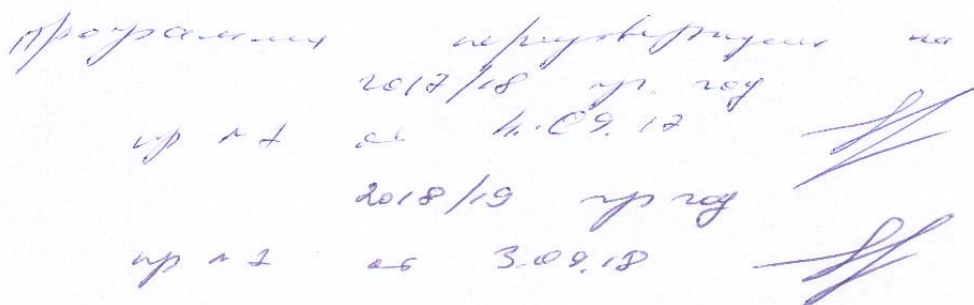 Программа переутверждена на
2017/18 уч. год
пр № 1 от 11.09.17
2018/19 уч год
пр № 1 от 3.09.18